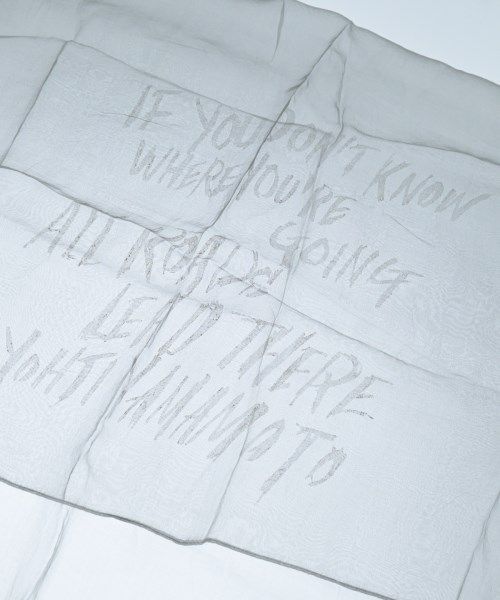 IF YOU DON'T KNOW
WHERE YOU'RE
GOING
ALL ROADS
LEAD THERE
YOHJI YAMAMOTO